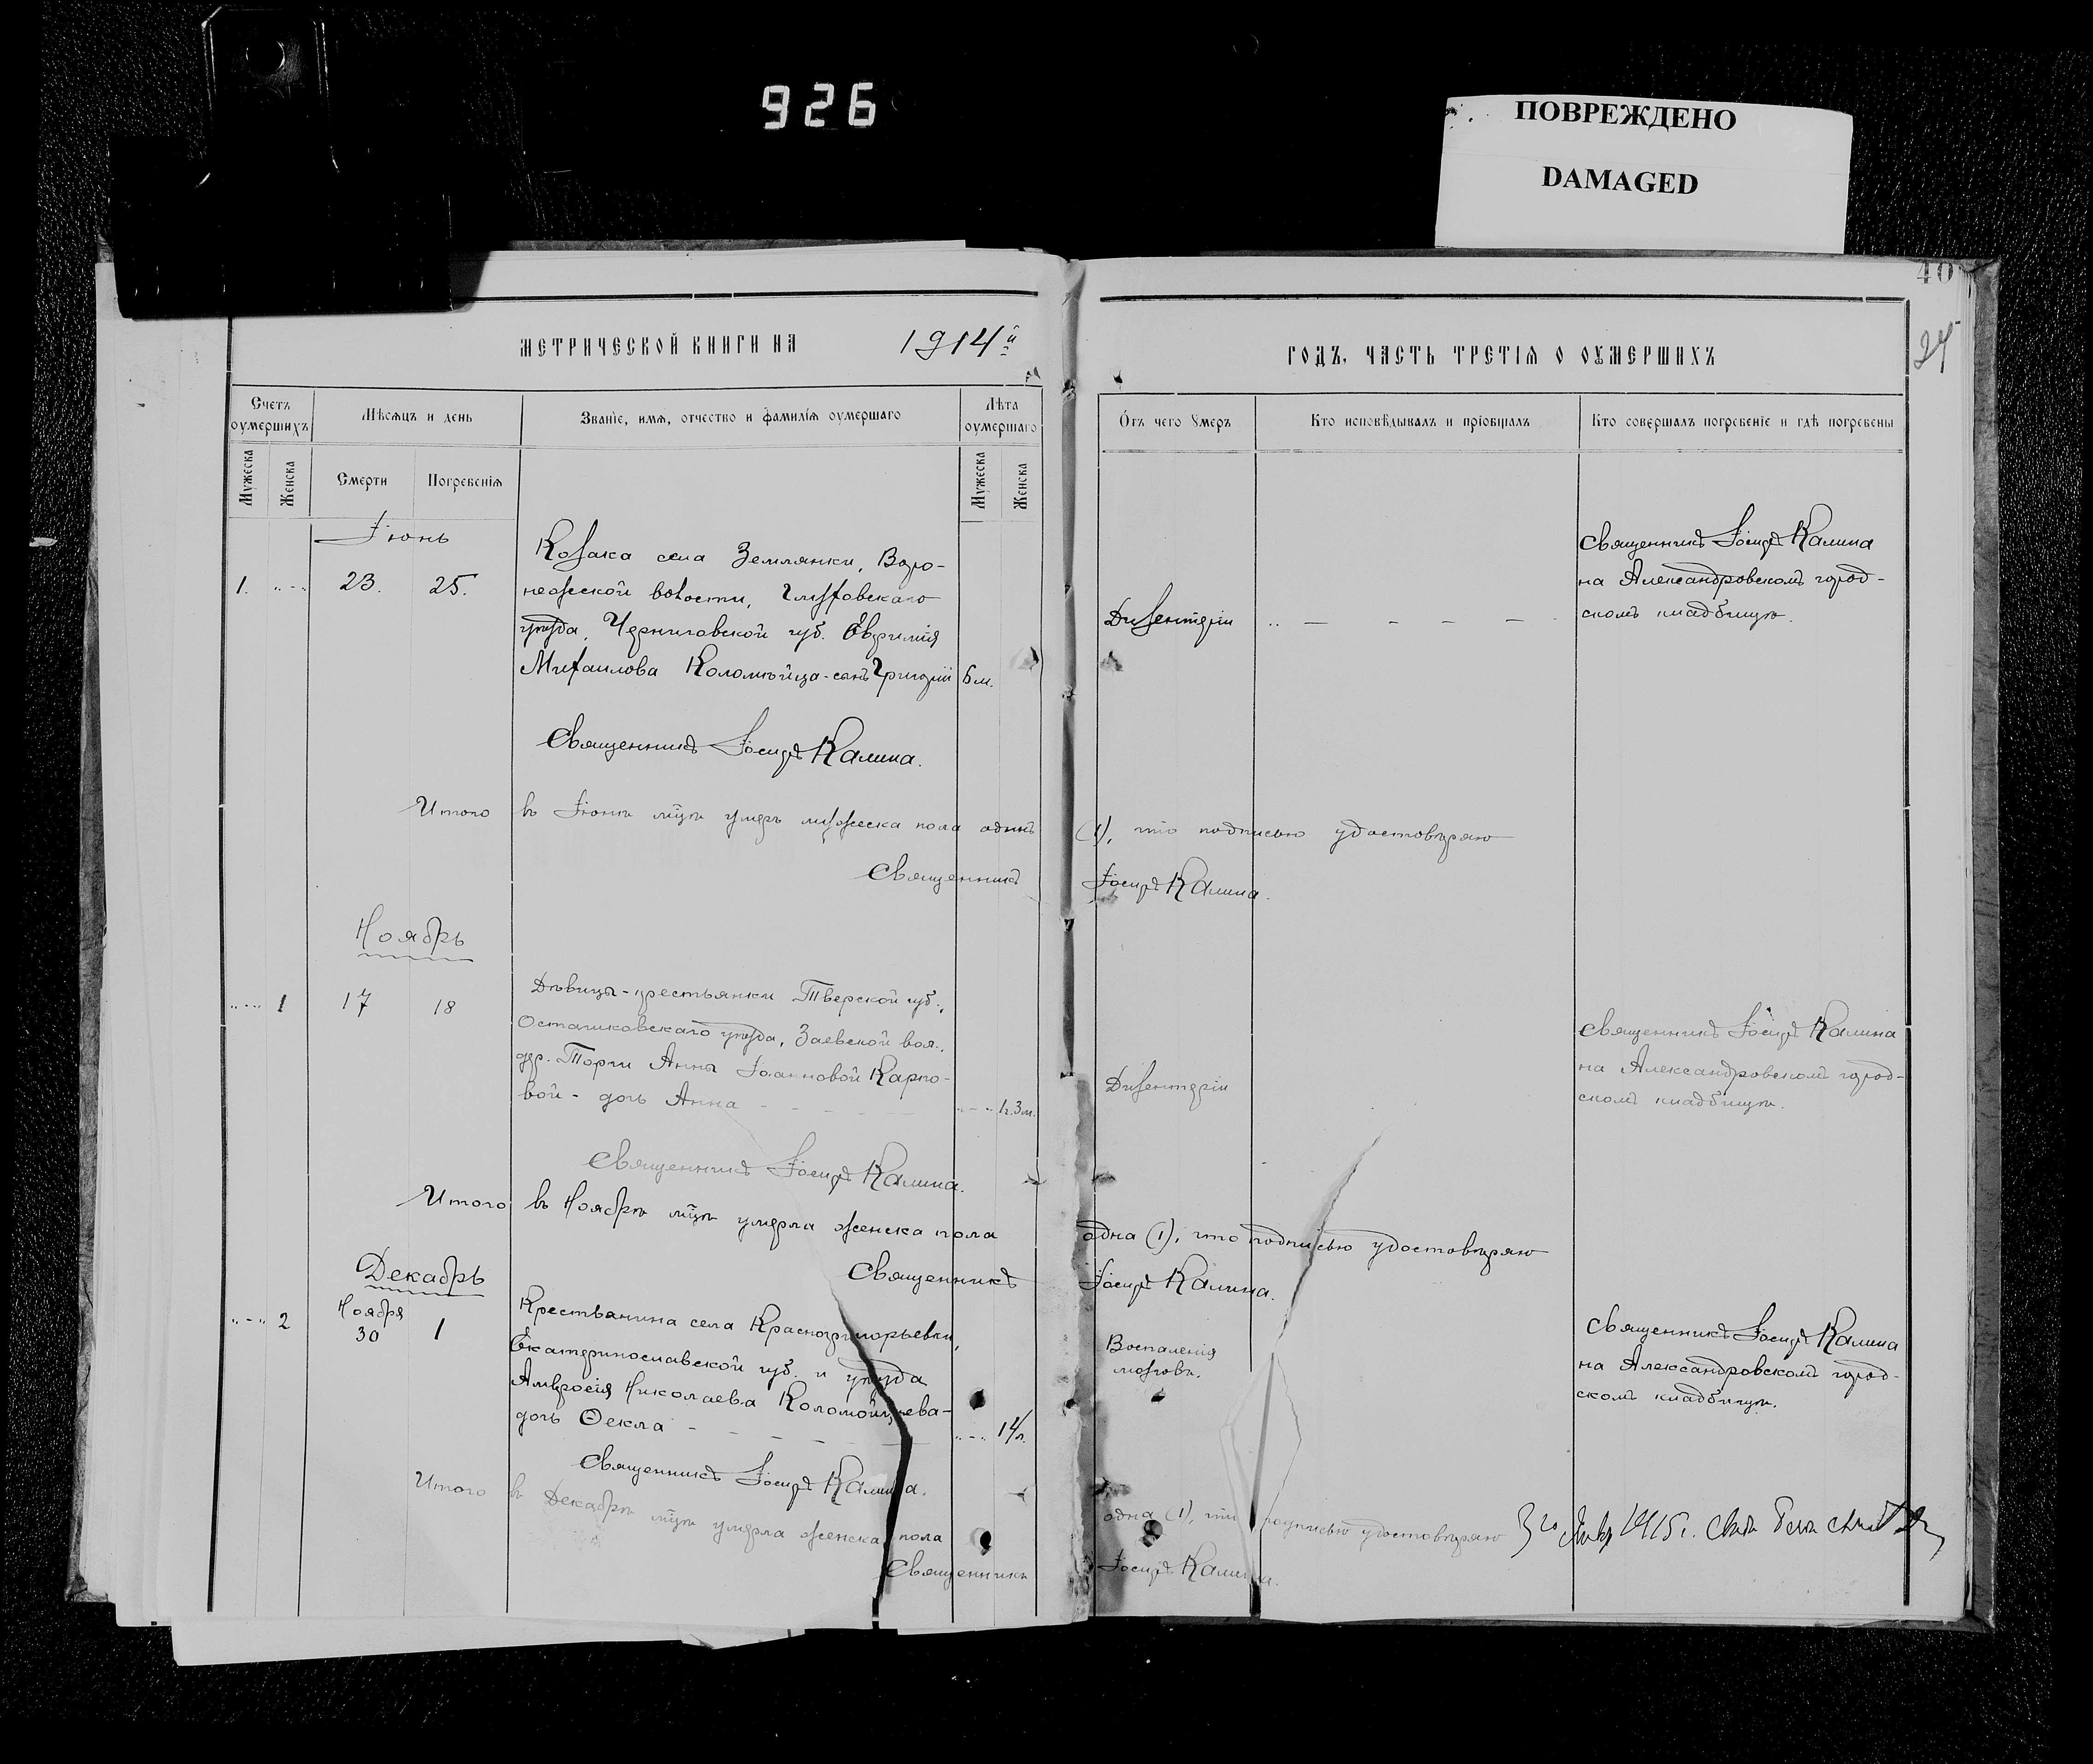 926
ПОВРЕЖДЕНО
DAMAGED
40
МЕТРИЧЕСКОЙ КНИГИ НА 1914й
ГОДЪ, ЧАСТЬ ТРЕТІЯ О ОУМЕРШИХЪ
Счетъ оумершихъ
Мѣсяцъ и день
Званіе, имя, отчество и фамилія оумершаго
Лѣта оумершаго
Отъ чего умеръ
Кто исповѣдывалъ и пріобщалъ
Кто совершалъ погребеніе и гдѣ погребены
Мужеска
Женска
Смерти
Погребенія
Мужеска
Женска
Іюнь
1. 23. 25.
Козака села Землянки, Воро-
нежской волости, Глуховскаго
уѣзда, Черниговской губ. Евфимія
Михаилова Коломыйца - сынъ Григорій 6 м.
Дизентеріи
Священникъ Іосифъ Калина
на Александровскомъ город-
скомъ кладбищѣ.
Священникъ Іосифъ Калина.
Итого въ Іюнѣ мцѣ умеръ мужеска пола одинъ (1), что подписью удостовѣряю
Священникъ Іосифъ Калина.
Ноябрь
1 17 18
Дѣвицы - крестьянки Тверской губ.,
Осташковскаго уѣзда, Заевской вол.,
дер. Торги Анны Іоанновой Карпо-
вой - дочь Анна - - 1 г. 3 м.
Дизентеріи
Священникъ Іосифъ Калина
на Александровскомъ город-
скомъ кладбищѣ.
Священникъ Іосифъ Калина.
Итого въ Ноябрѣ мцѣ умерла женска пола одна (1), что подписью удостовѣряю
Священникъ Іосифъ Калина.
Декабрь
2 Ноября 30 1
Крестьянина села Красногригорьевки,
Екатеринославской губ. и уѣзда
Амвросія Николаева Коломойцева -
дочь Ѳекла - - - - 14 л.
Воспаленія
мозговъ.
Священникъ Іосифъ Калина
на Александровскомъ город-
скомъ кладбищѣ.
Священникъ Іосифъ Калина.
Итого въ Декабрѣ мцѣ умерла женска пола одна (1), что подписью удостовѣряю
Священникъ Іосифъ Калина.
1915 г.